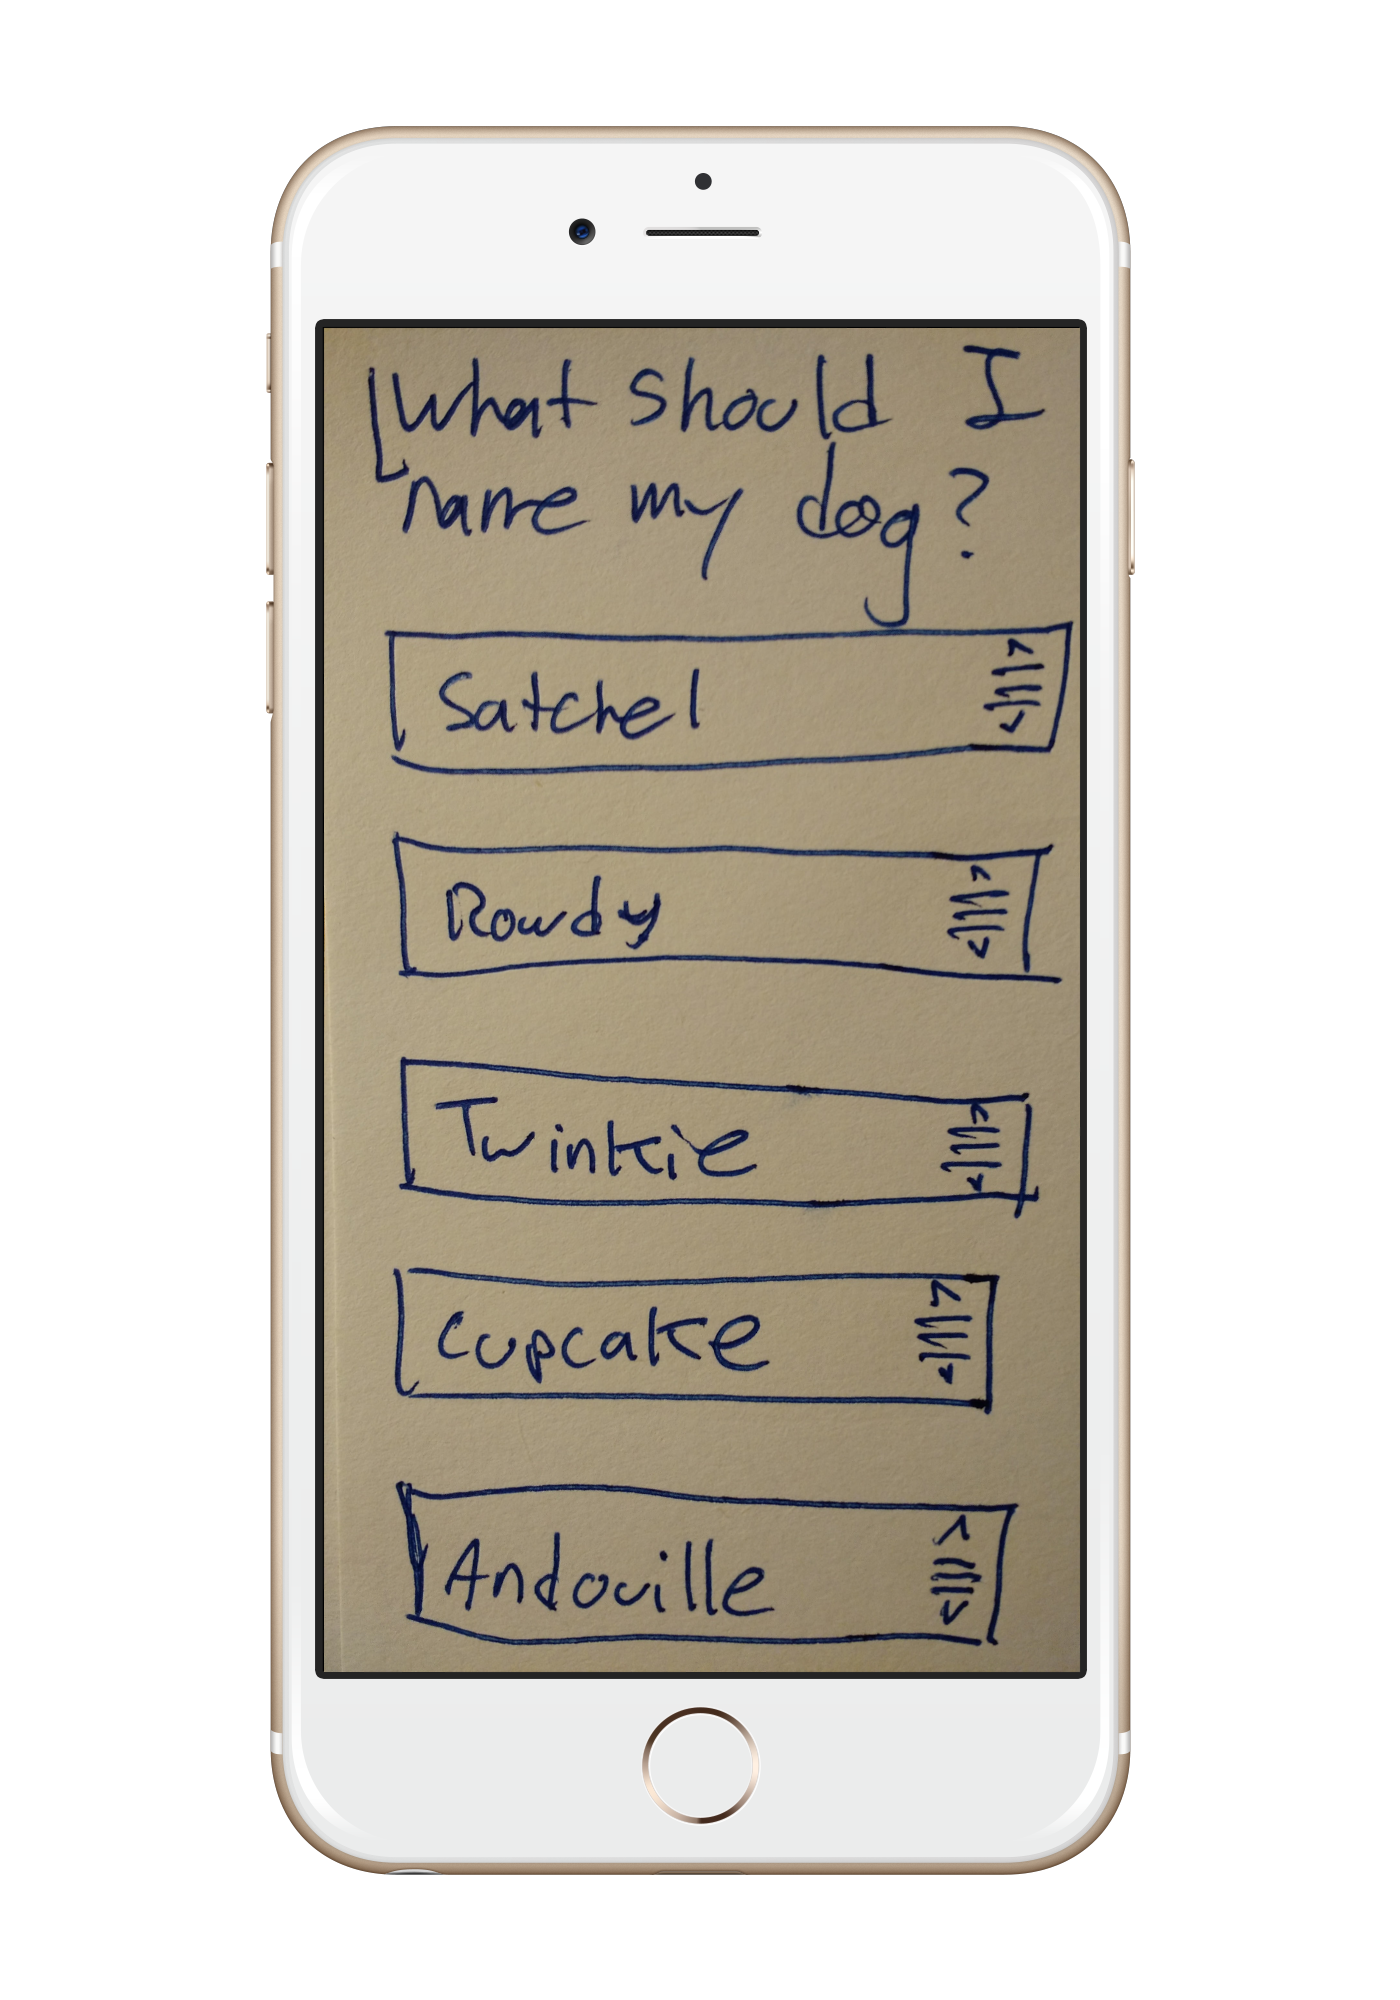 What should I
name my dog?
Satchel
Rowdy
Twinkie
Cupcake
Andouille